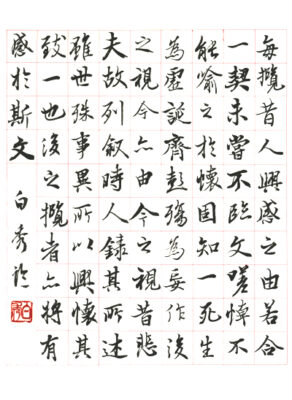 每攬昔人興感之由若合
一契未嘗不臨文嗟悼不
能喻之於懷固知一死生
為虛誕齊彭殤為妄作後
之視今亦由今之視昔悲
夫故列敘時人錄其所述
雖世殊事異所以興懷其
致一也後之攬者亦將有
感於斯文
白秀